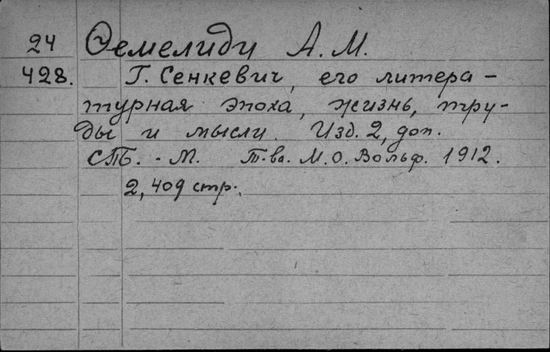 24 Фемелиди А. М.
428. Г. Сенкевич, его литера-
турная эпоха, жизнь, тру-
ды и мысли. Изд. 2, доп.
СПб. - М. Т-во. М. О. Вольф. 1912.
2, 409 стр.